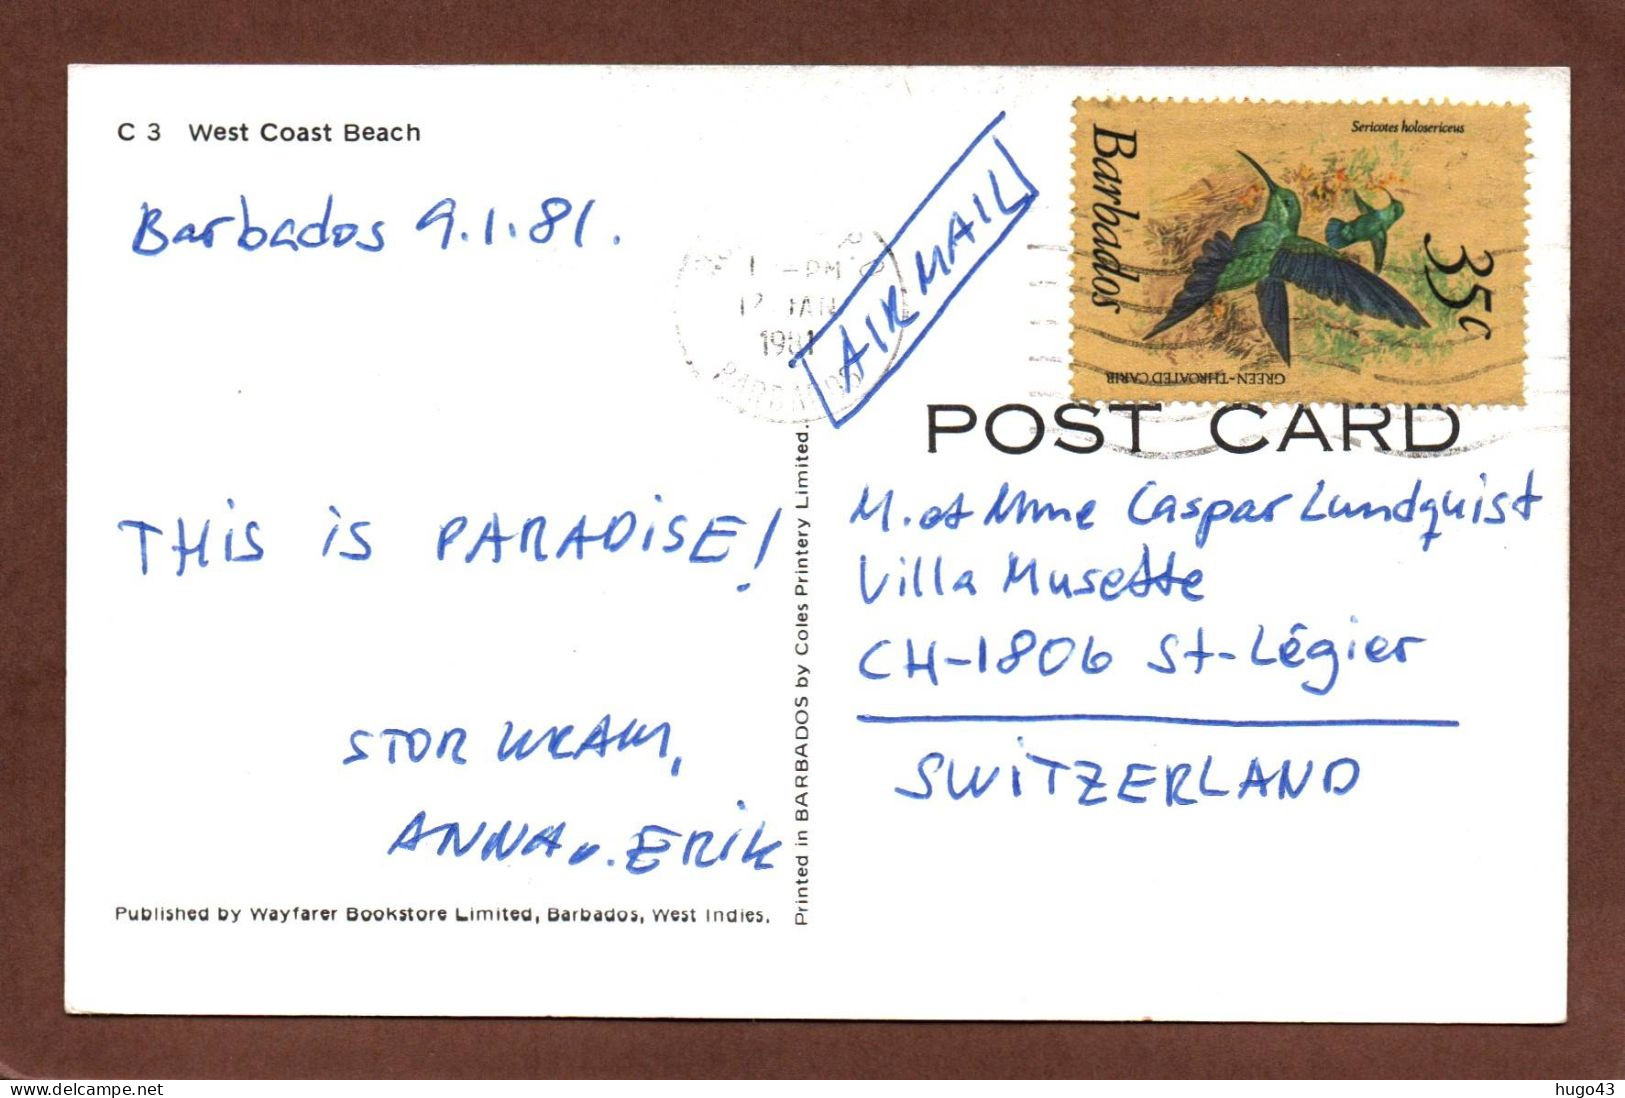 C 3 West Coast Beach
Barbados 9.1.81.
THiS iS PARADiSE!
STOR KRAM,
ANNA o. ERiK
Published by Wayfarer Bookstore Limited, Barbados, West Indies.
Printed in BARBADOS by Coles Printery Limited.
PM
12 JAN
1981
BARBADOS
AIR MAIL
Barbados
Sericotes holosericeus
35c
GREEN-THROATED CARIB
POST CARD
M. et Mme Caspar Lundquist
Villa Musette
CH-1806 St-Légier
SWiTZERLAND
delcampe.net
hugo43